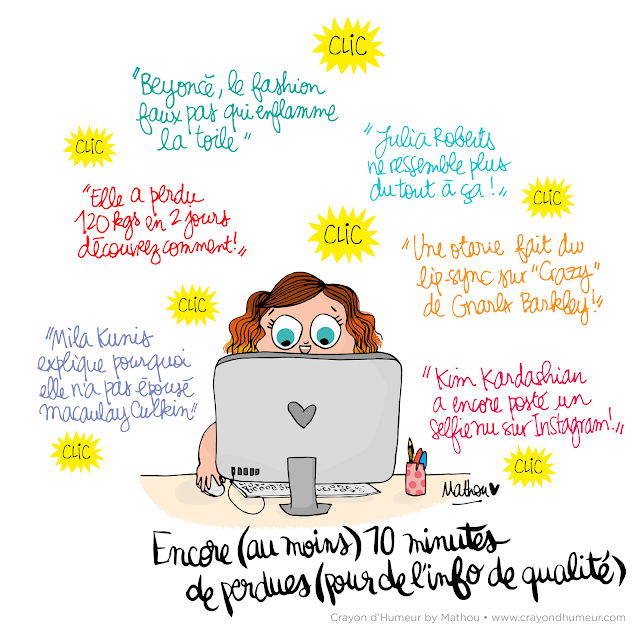 CLIC
"Beyoncé, le fashion
faux pas qui enflamme
la toile"
CLIC
"Julia Roberts
ne ressemble plus
du tout à ça !"
CLIC
"Elle a perdu
120 kgs en 2 jours
découvrez comment!"
CLIC
"Une otarie fait du
lip-sync sur "Crazy"
de Gnarls Barkley!"
CLIC
"Mila Kunis
explique pourquoi
elle n'a pas épousé
macaulay Culkin"
CLIC
"Kim Kardashian
a encore posté un
selfie nu sur Instagram!"
CLIC
Mathou
Encore (au moins) 10 minutes
de perdues (pour de l'info de qualité)
Crayon d'Humeur by Mathou • www.crayondhumeur.com